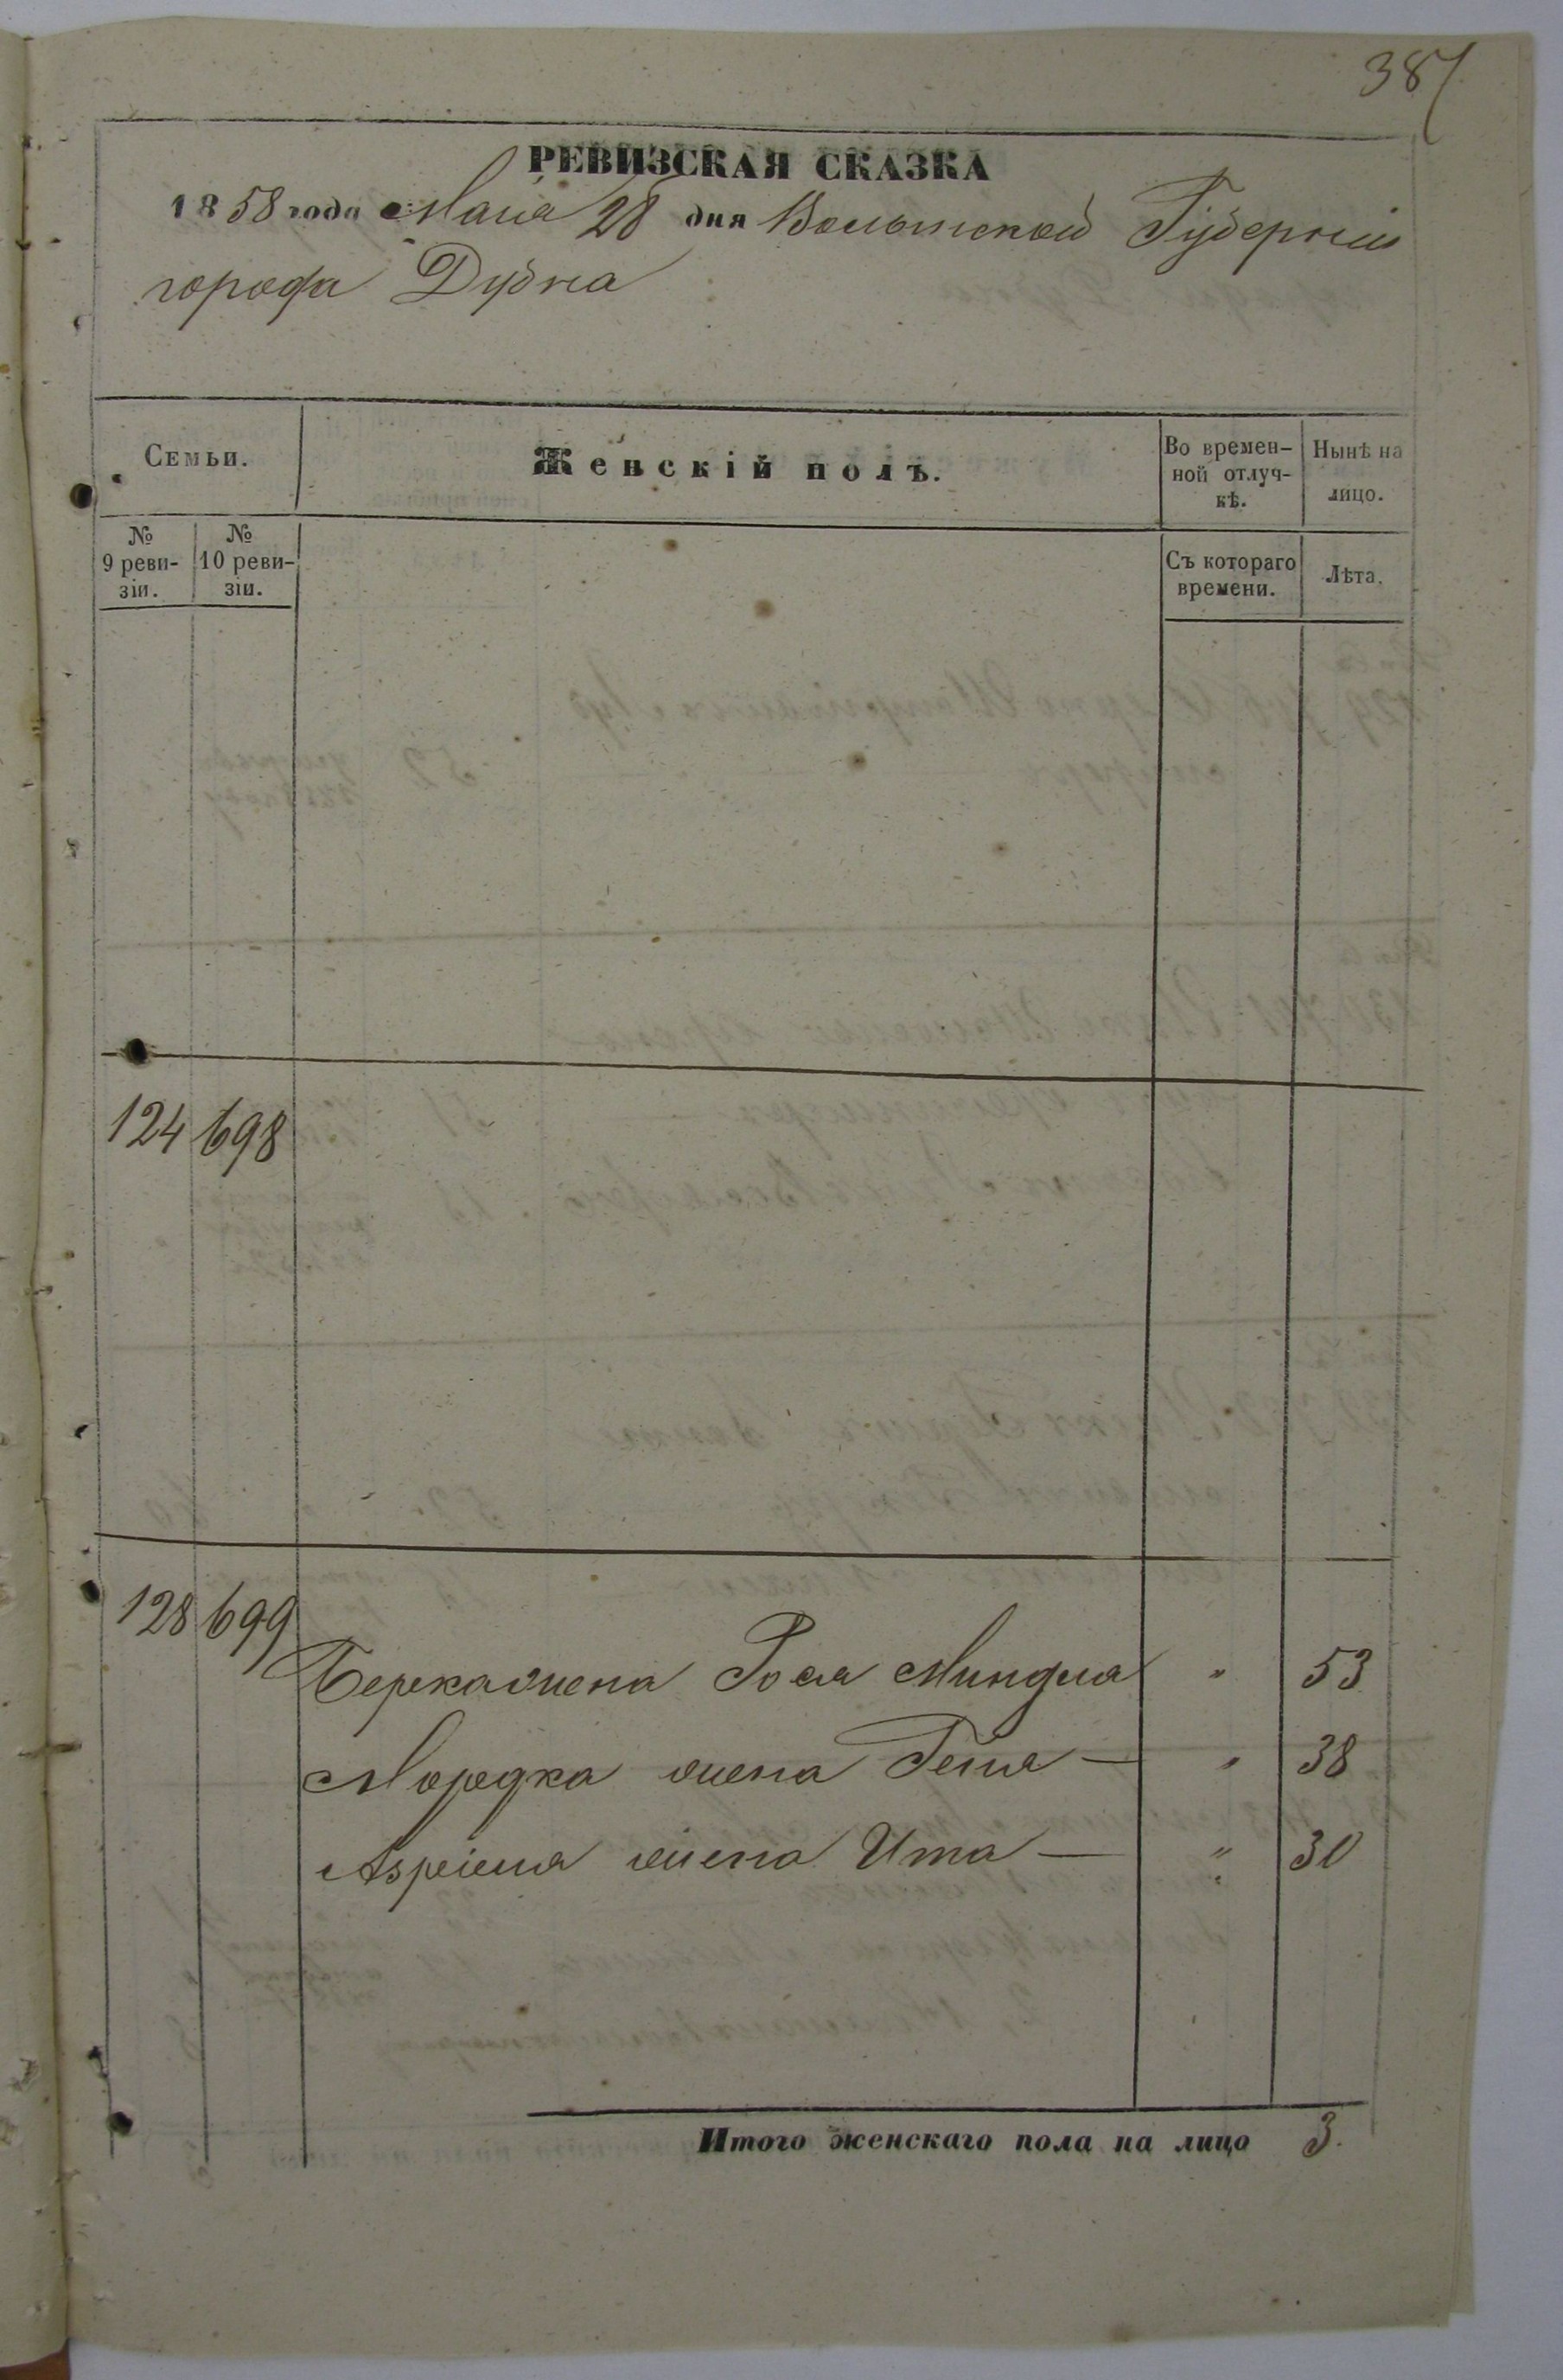 387
РЕВИЗСКАЯ СКАЗКА
1858 года Мая 28 дня Волынской Губернии
города Дубна
Семьи.
Женскій полъ.
Во времен-
ной отлуч-
кѣ.
Нынѣ на
лицо.
№
9 реви-
зіи.
№
10 реви-
зіи.
Съ котораго
времени.
Лѣта.
124 698
128 699
Берка жена Рося Миндля " 53
Мордка жена Гения — " 38
Азриеля жена Ита — " 30
Итого женскаго пола на лицо 3.